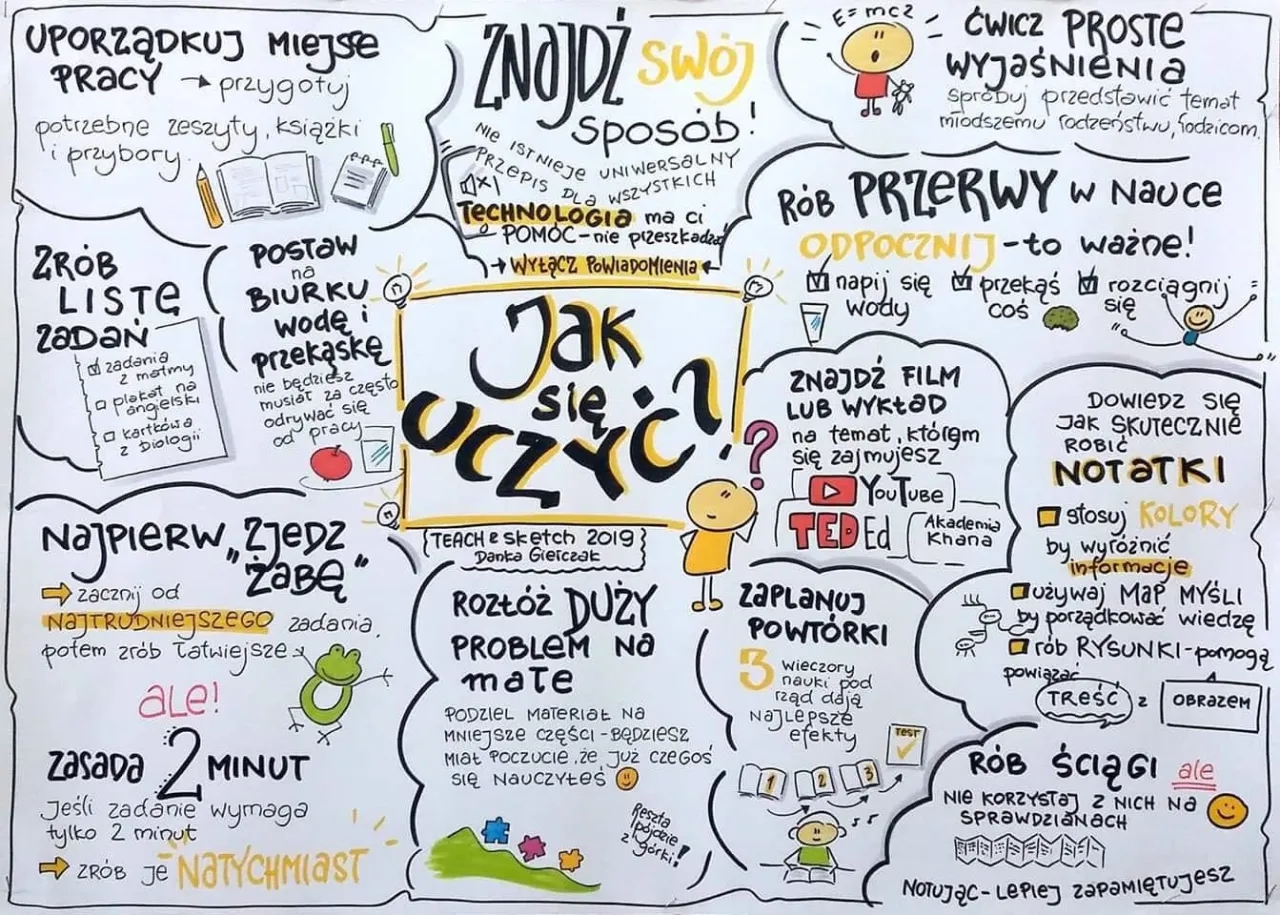 UPORZĄDKUJ MIEJSCE
PRACY → przygotuj
potrzebne zeszyty, książki
i przybory.
ZNAJDŹ SWÓJ
SPOSÓB!
NIE ISTNIEJE UNIWERSALNY
PRZEPIS DLA WSZYSTKICH
TECHNOLOGIA ma ci
POMÓC - nie przeszkadzać
→ WYŁĄCZ POWIADOMIENIA ←
E=mc2
ĆWICZ PROSTE
WYJAŚNIENIA
spróbuj przedstawić temat
młodszemu rodzeństwu, rodzicom.
RÓB PRZERWY W NAUCE
ODPOCZNIJ - to ważne!
napij się
wody
przekąś
coś
rozciągnij
się
ZRÓB
LISTĘ
ZADAŃ
zadania
z matmy
plakat na
angielski
kartkówa
z biologii
POSTAW
na
BIURKU
wodę i
przekąskę
nie będziesz
musiał za często
odrywać się
od pracy
JAK
się
UCZYĆ?
TEACH & SKETCH 2019
Danka Gierczak
ZNAJDŹ FILM
LUB WYKŁAD
na temat, którym
się zajmujesz
YouTube
TED Ed
Akademia
Khana
DOWIEDZ SIĘ
JAK SKUTECZNIE
ROBIĆ
NOTATKI
stosuj KOLORY
by wyróżnić
informacje
używaj MAP MYŚLI
by porządkować wiedzę
rób RYSUNKI - pomogą
powiązać
TREŚĆ z OBRAZEM
NAJPIERW „ZJEDZ
ŻABĘ"
zacznij od
NAJTRUDNIEJSZEGO zadania,
potem zrób łatwiejsze
ale!
ZASADA 2 MINUT
Jeśli zadanie wymaga
tylko 2 minut
ZRÓB JE NATYCHMIAST
ROZŁÓŻ DUŻY
PROBLEM NA
małe
PODZIEL MATERIAŁ NA
MNIEJSZE CZĘŚCI - BĘDZIESZ
MIAŁ POCZUCIE, ŻE JUŻ CZEGOŚ
SIĘ NAUCZYŁEŚ
Reszta
pójdzie
z górki!
ZAPLANUJ
POWTÓRKI
3 wieczory
nauki pod
rząd dają
NAJLEPSZE
efekty
TEST
1 2 3
RÓB ŚCIĄGI ale
NIE KORZYSTAJ Z NICH NA
SPRAWDZIANACH
NOTUJĄC - LEPIEJ ZAPAMIĘTUJESZ